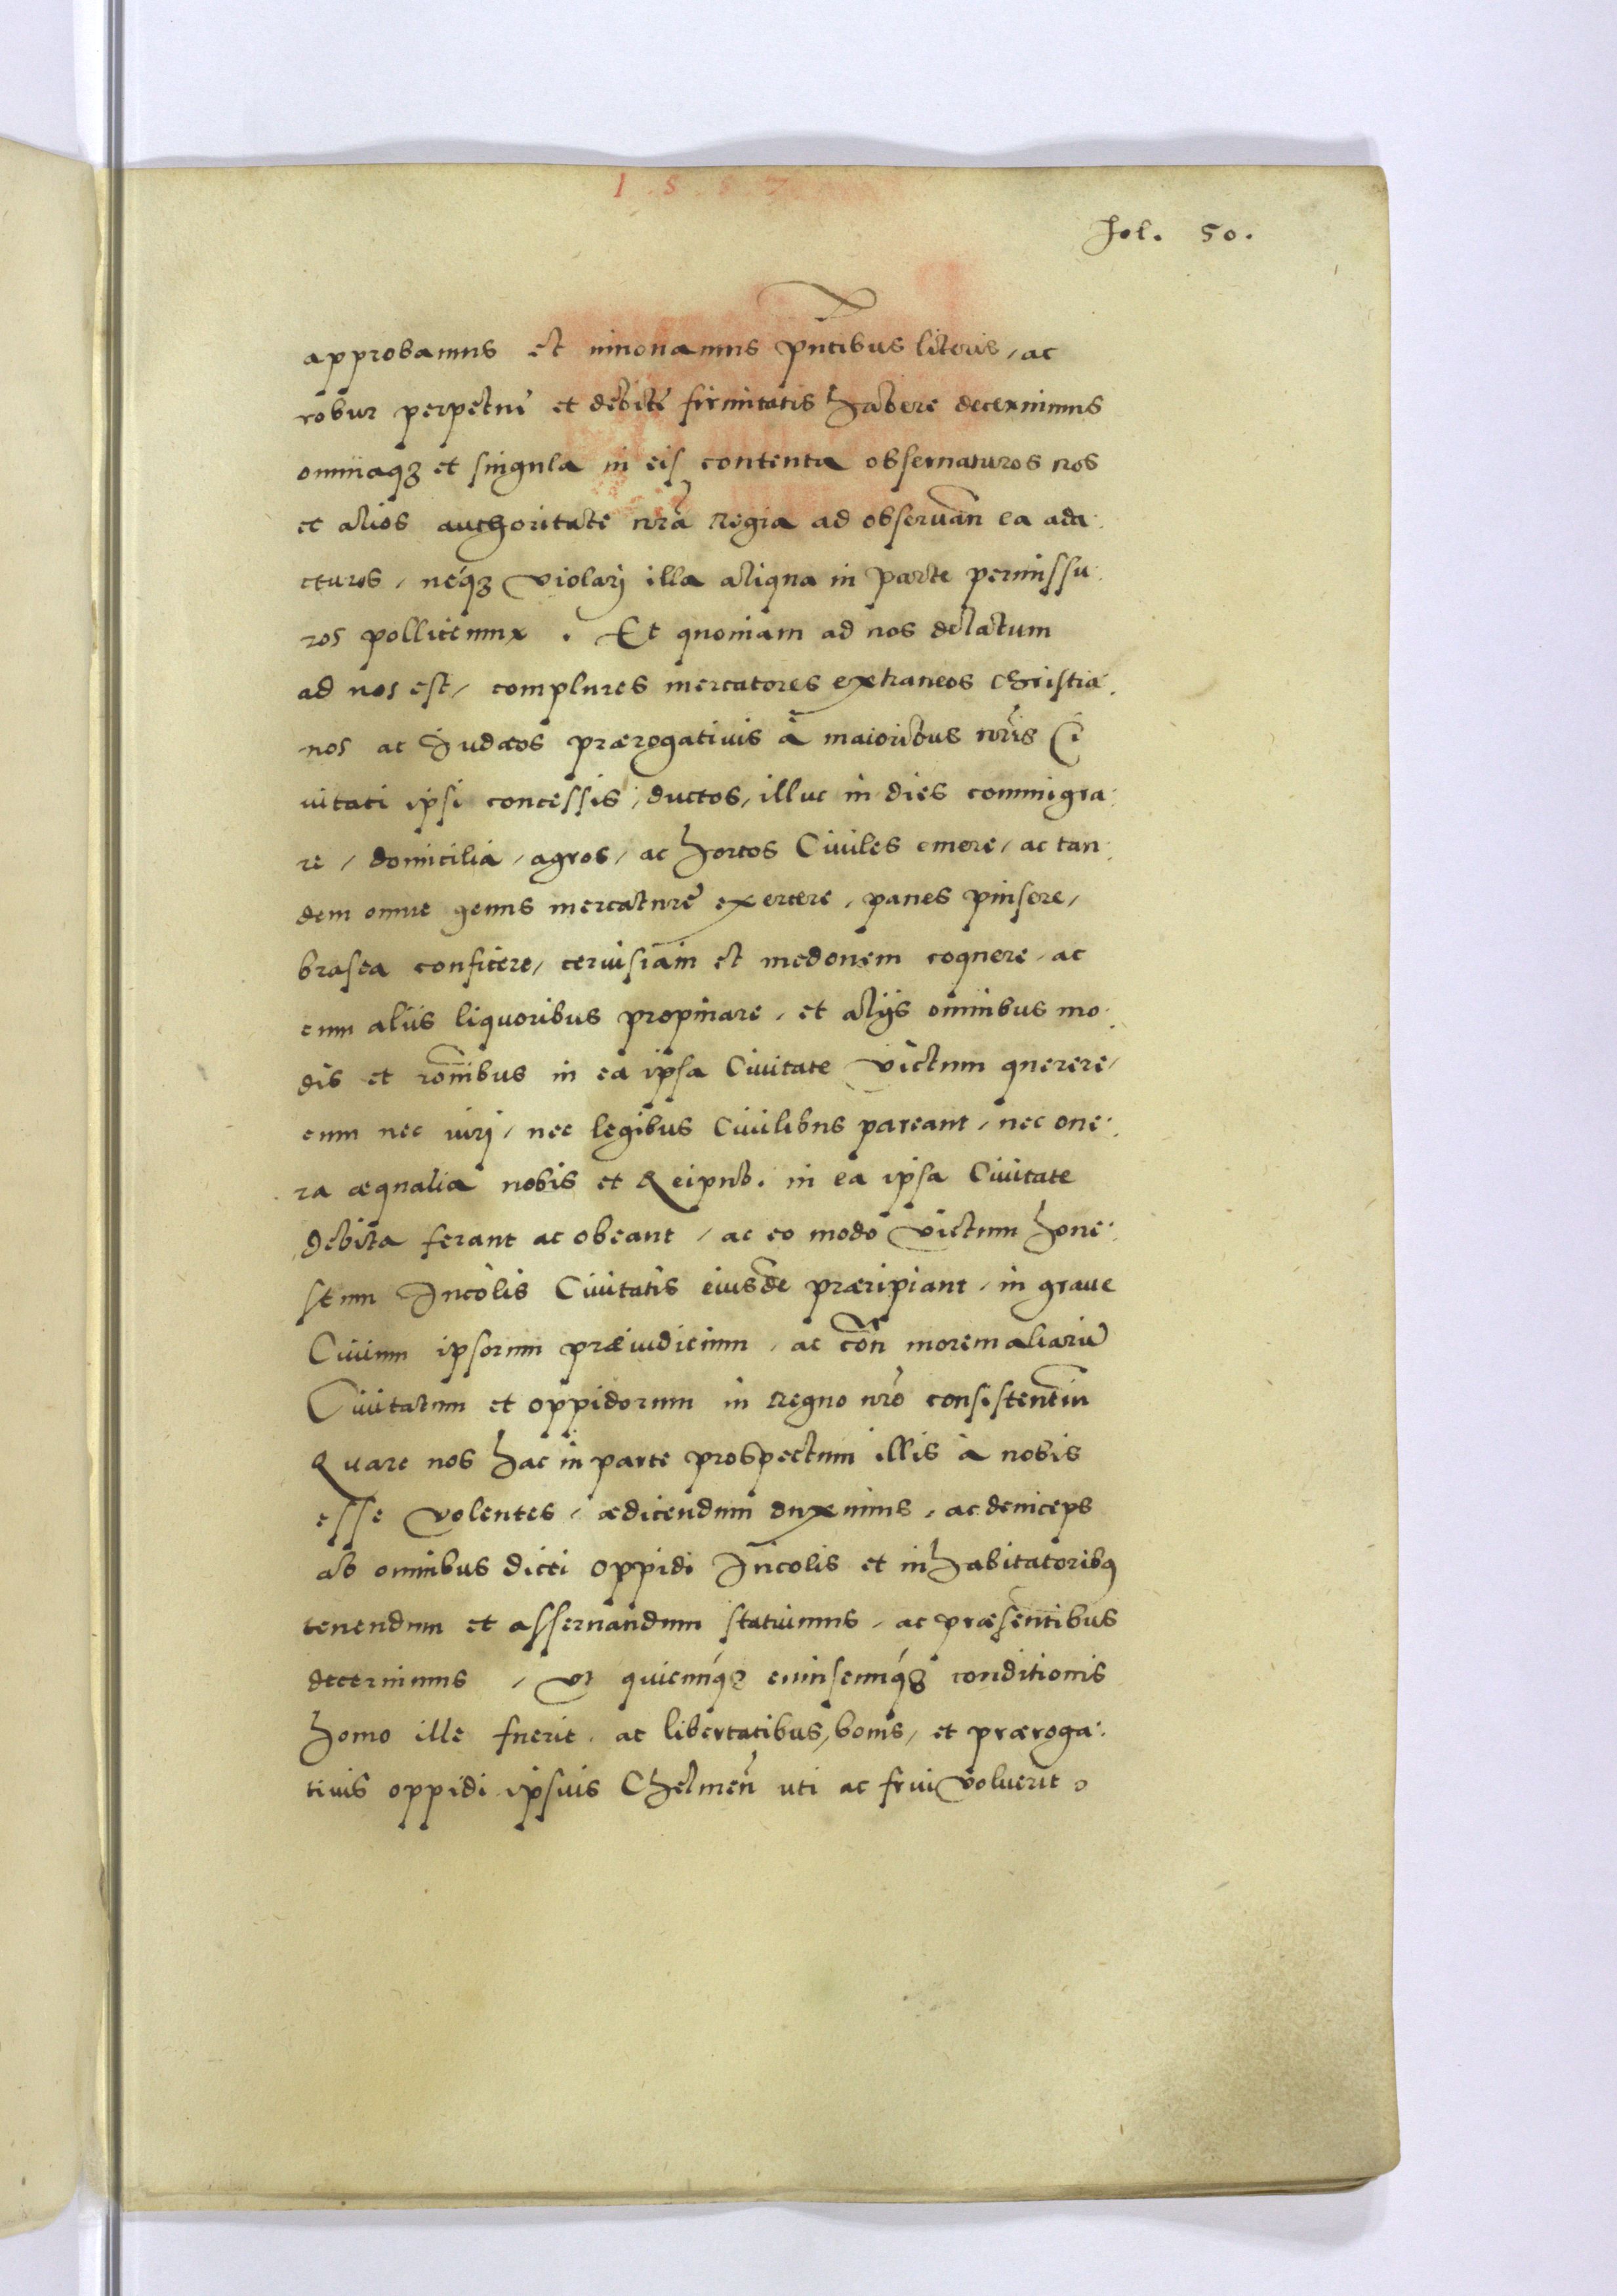 1 . 5 . 5 . 7
Fol. 50.
approbamus et innouamus pñtibus literis, ac
robur perpetui et debite firmitatis habere decernimus
omniaqꝫ et singula in eis contenta obseruaturos nos
et alios authoritate nrã Regia ad obseruan̄ ea ada:
cturos, neqꝫ violarj illa aliqua in parte permissu:
ros pollicemur. Et quoniam ad nos delatum
ad nos est, complures mercatores extraneos Christia:
nos ac Judæos prærogatiuis à maioribus nr̃is Ci
uitati ipsi concessis, ductos, illuc in dies commigra:
re, domicilia, agros, ac hortos Ciuiles emere, ac tan:
dem omne genus mercaturę exercere, panes pinsere,
brasea conficere, ceruisiam et medonem coquere, ac
cum aliis liquoribus propinare, et alijs omnibus mo:
dis et rōnibus in ea ipsa Ciuitate victum querere,
cum nec iurj, nec legibus Ciuilibus pareant, nec one:
ra æqualia nobis et Reipub. in ea ipsa Ciuitate
debita ferant ac obeant, ac eo modo victum hone:
stum Incolis Ciuitatis eiusdē præripiant, in graue
Ciuium ipsorum præiudicium, ac cōn morem aliarū
Ciuitatum et oppidorum in Regno nrõ consistentiū
Quare nos hac in parte prospectum illis à nobis
esse volentes, ædicendum duximus, ac deinceps
ab omnibus dicti oppidi Incolis et inhabitatoribꝯ
tenendum et asseruandum statuimus, ac præsentibus
decernimus, vt quicunqꝫ cuiuscunqꝫ conditionis
homo ille fuerit, ac libertatibus, bonis, et præroga:
tiuis oppidi ipsius Chelmen̄ uti ac frui voluerit